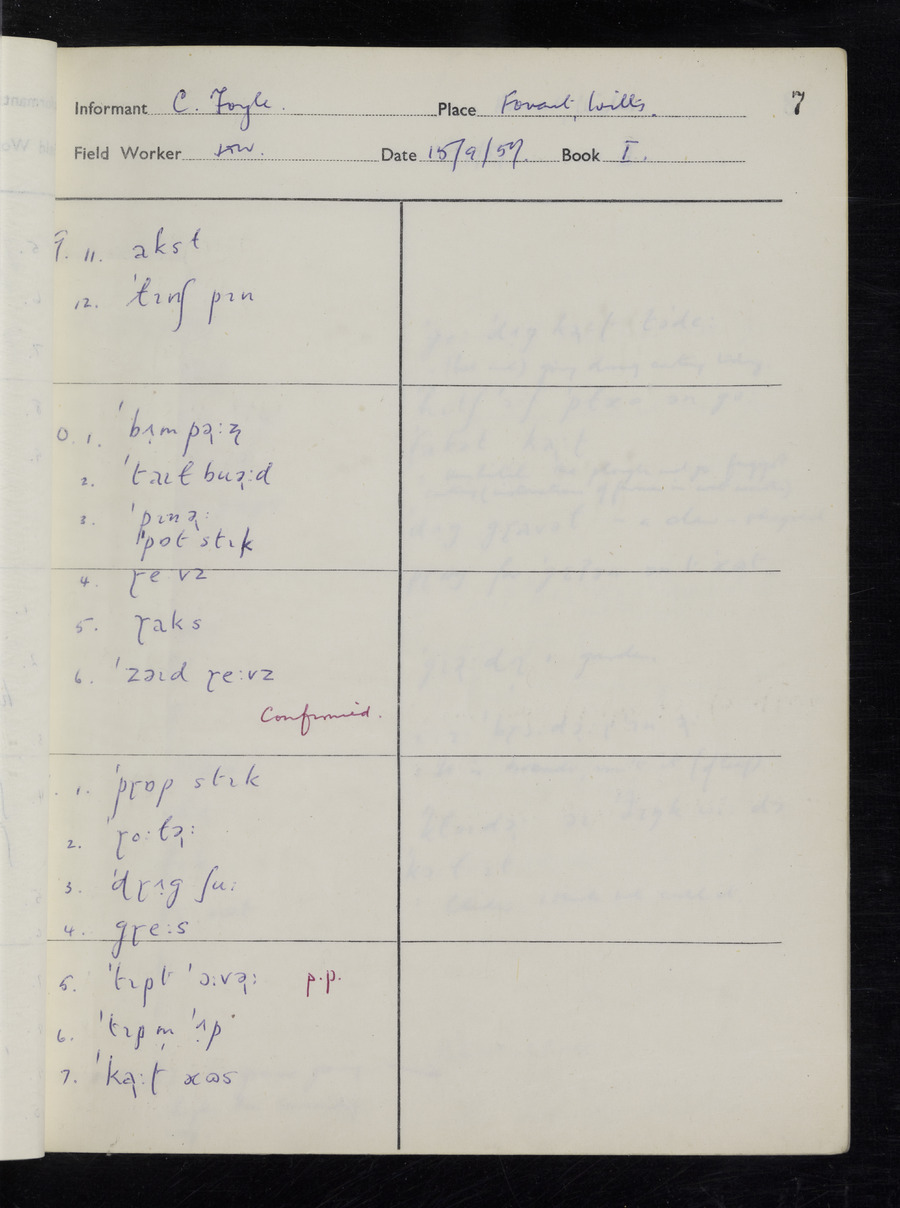 Informant C. Foyle. Place Fovant, Wilts. 7
Field Worker Date 15/9/57. Book I.
9. 11. akst
12. ˈtɪnʃ pɪn
0. 1.
2. ˈtaɪt buə˞ːd
3. ˈpɪnə˞ː
ˈpɒt stɪk
4. ɽeːvz
5. ɽaks
6. ˈzəɪd ɽeːvz
Confirmed.
1. ˈpɽɒp stɪk
2. ˈɽoːɫə˞ː
3. ˈdɽʌg ʃuː
4. gɽeːs
5. ˈtɪpt ˈɔːvə˞ː p.p.
6. ˈtɪp m̩ ˈʌp
7. ˈkə˞ːt